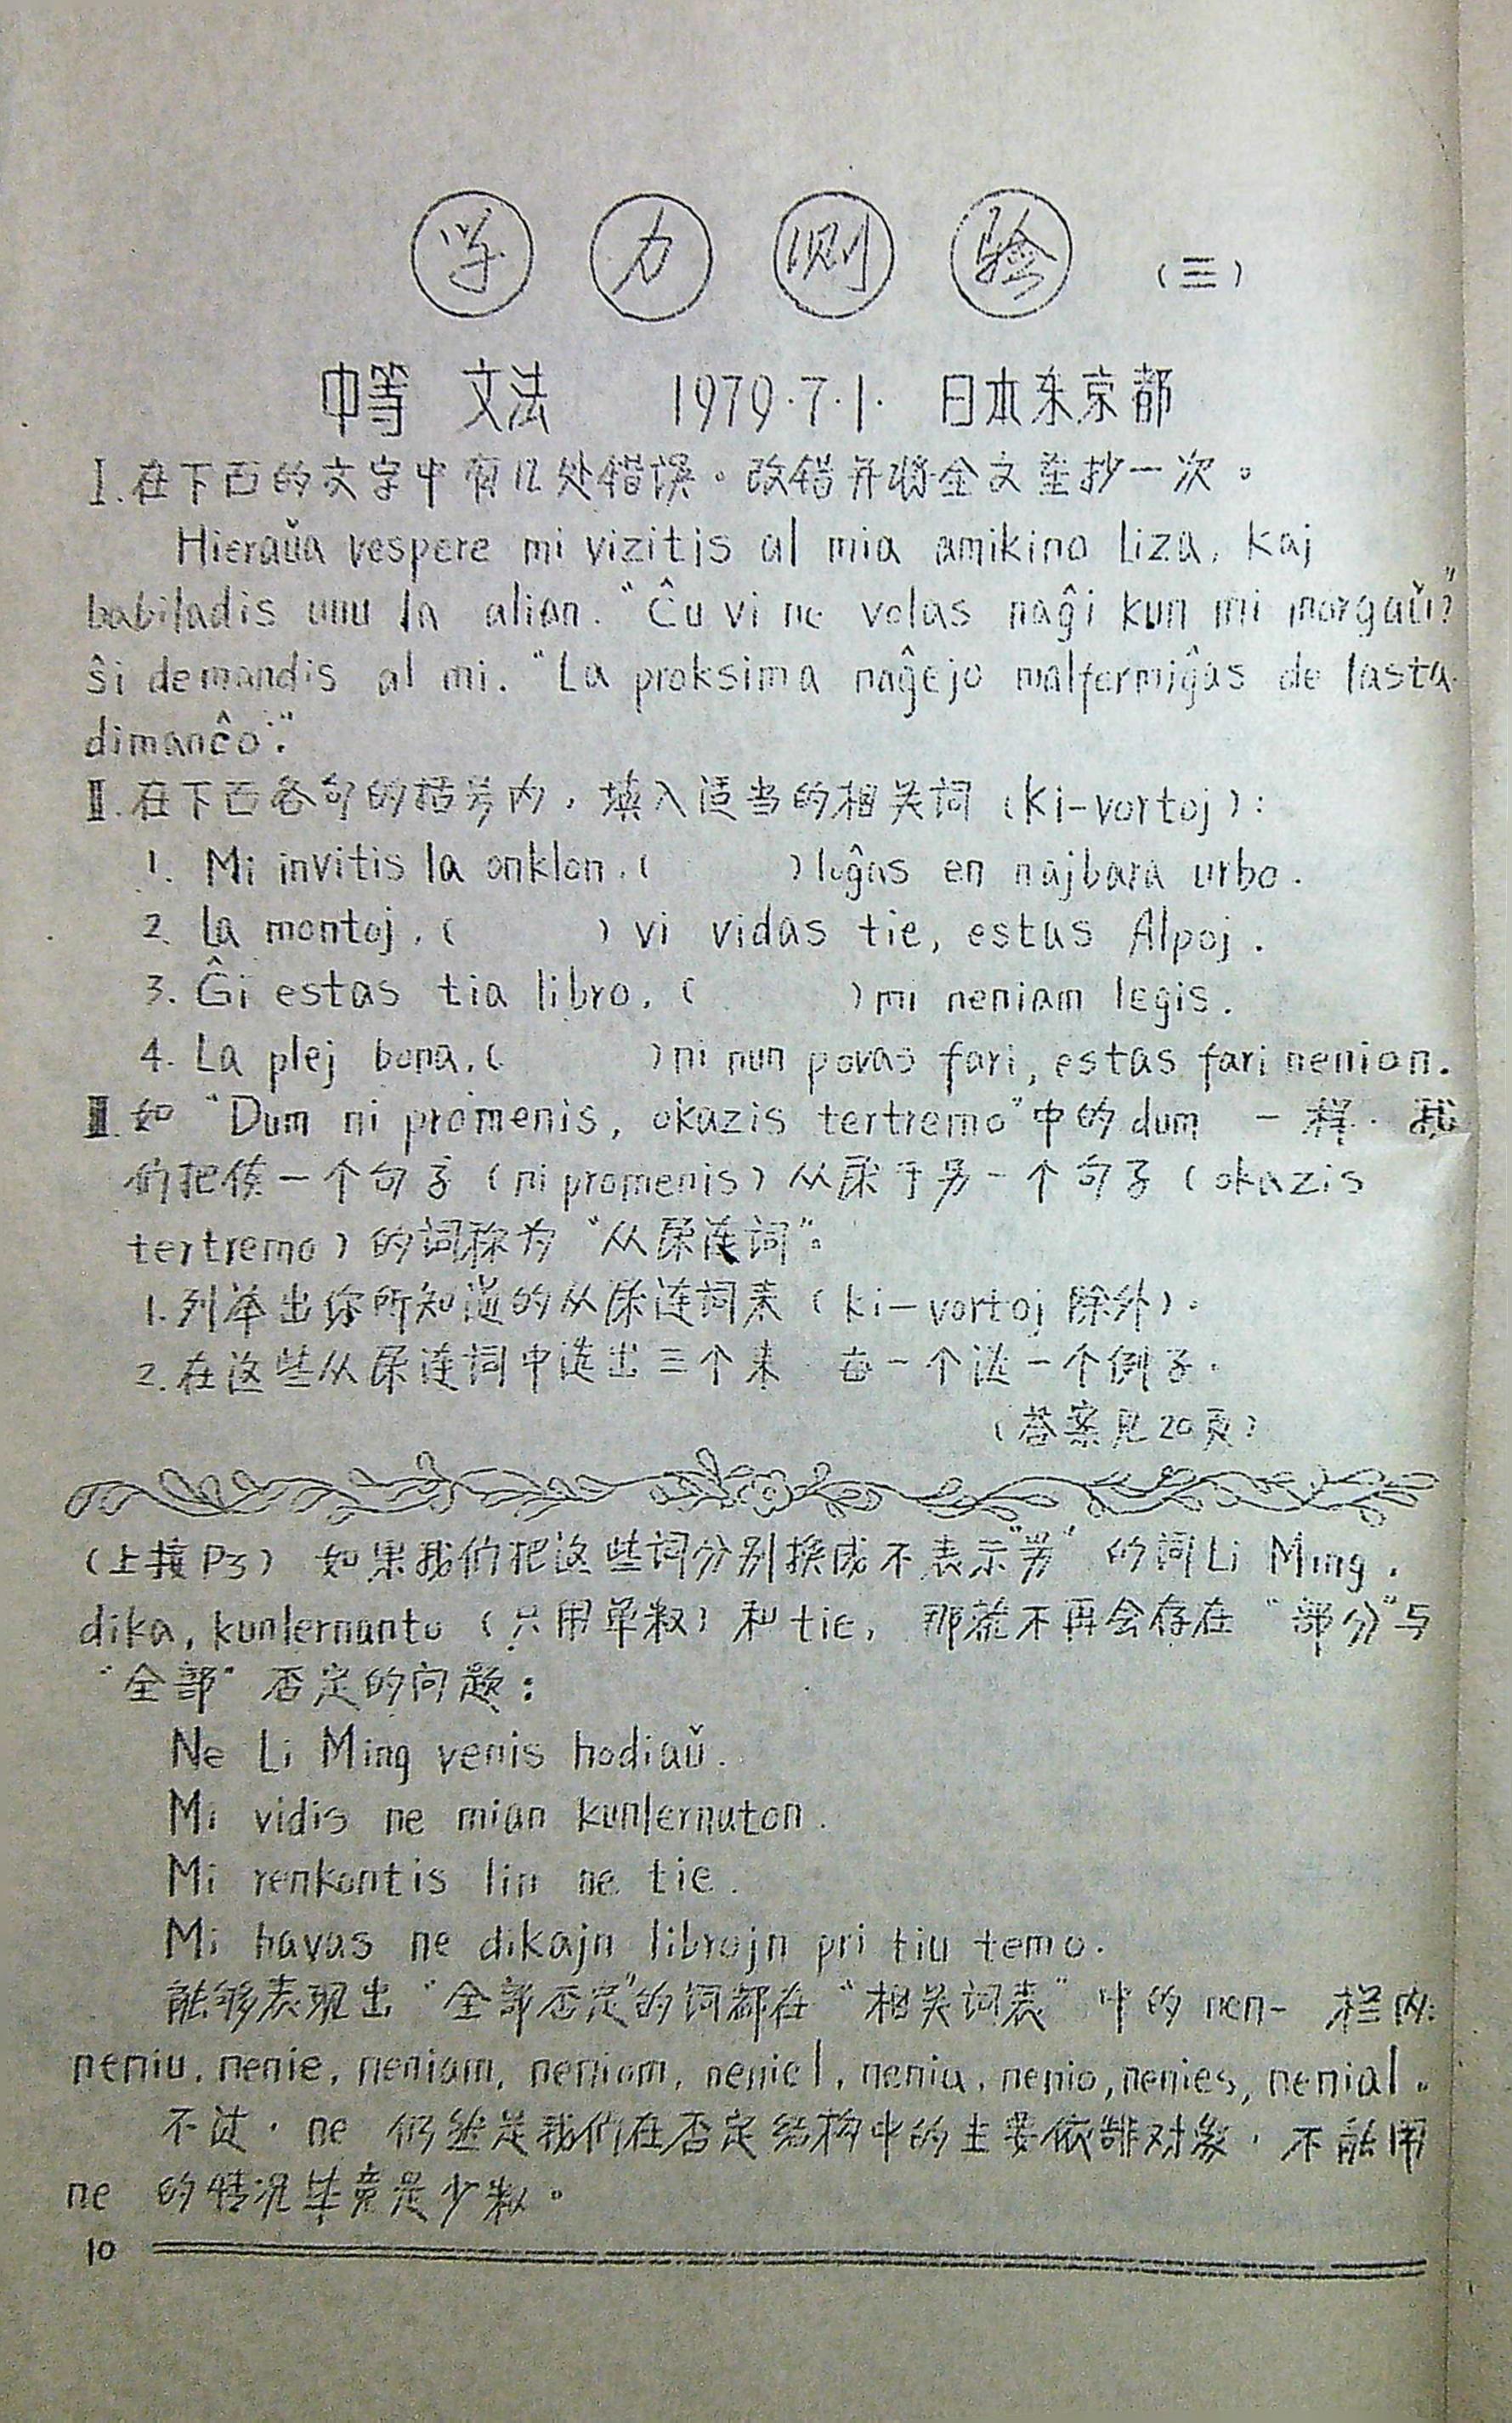 学力测验（三）
中等 文法 1979·7·1· 日本东京都
Ⅰ.在下面的文字中有几处错误。改错并将全文重抄一次。
Hieraŭa vespere mi vizitis al mia amikino Liza, kaj
babiladis unu la alian. "Ĉu vi ne volas naĝi kun mi morgaŭ?"
ŝi demandis al mi. "La proksima naĝejo malfermiĝas de lasta
dimanĉo."
Ⅱ.在下面各句的括号内，填入适当的相关词（Ki-vortoj）：
1. Mi invitis la onklon, (        ) loĝas en najbara urbo.
2. La montoj, (        ) vi vidas tie, estas Alpoj.
3. Ĝi estas tia libro, (        ) mi neniam legis.
4. La plej bona, (        ) ni nun povas fari, estas fari nenion.
Ⅲ.如 "Dum ni promenis, okazis tertremo"中的dum 一样，我
们把使一个句子（ni promenis）从属于另一个句子（okazis
tertremo）的词称为"从属连词"。
1.列举出你所知道的从属连词来（ki-vortoj 除外）.
2.在这些从属连词中选出三个来 每一个造一个例子.
（答案见20页）
（上接P3） 如果我们把这些词分别换成不表示"类"的词Li Ming,
dika, kunlernanto（只用单数）和 tie, 那就不再会存在"部分"与
"全部"否定的问题：
Ne Li Ming venis hodiaŭ.
Mi vidis ne mian kunlernuton.
Mi renkontis lin ne tie.
Mi havas ne dikajn librojn pri tiu temo.
能够表现出"全部否定"的词都在"相关词表"中的 nen- 栏内:
neniu, nenie, neniam, neniom, neniel, nenia, nenio, nenies, nenial。
不过，ne 仍然是我们在否定结构中的主要依靠对象，不能用
ne 的情况毕竟是少数。
10